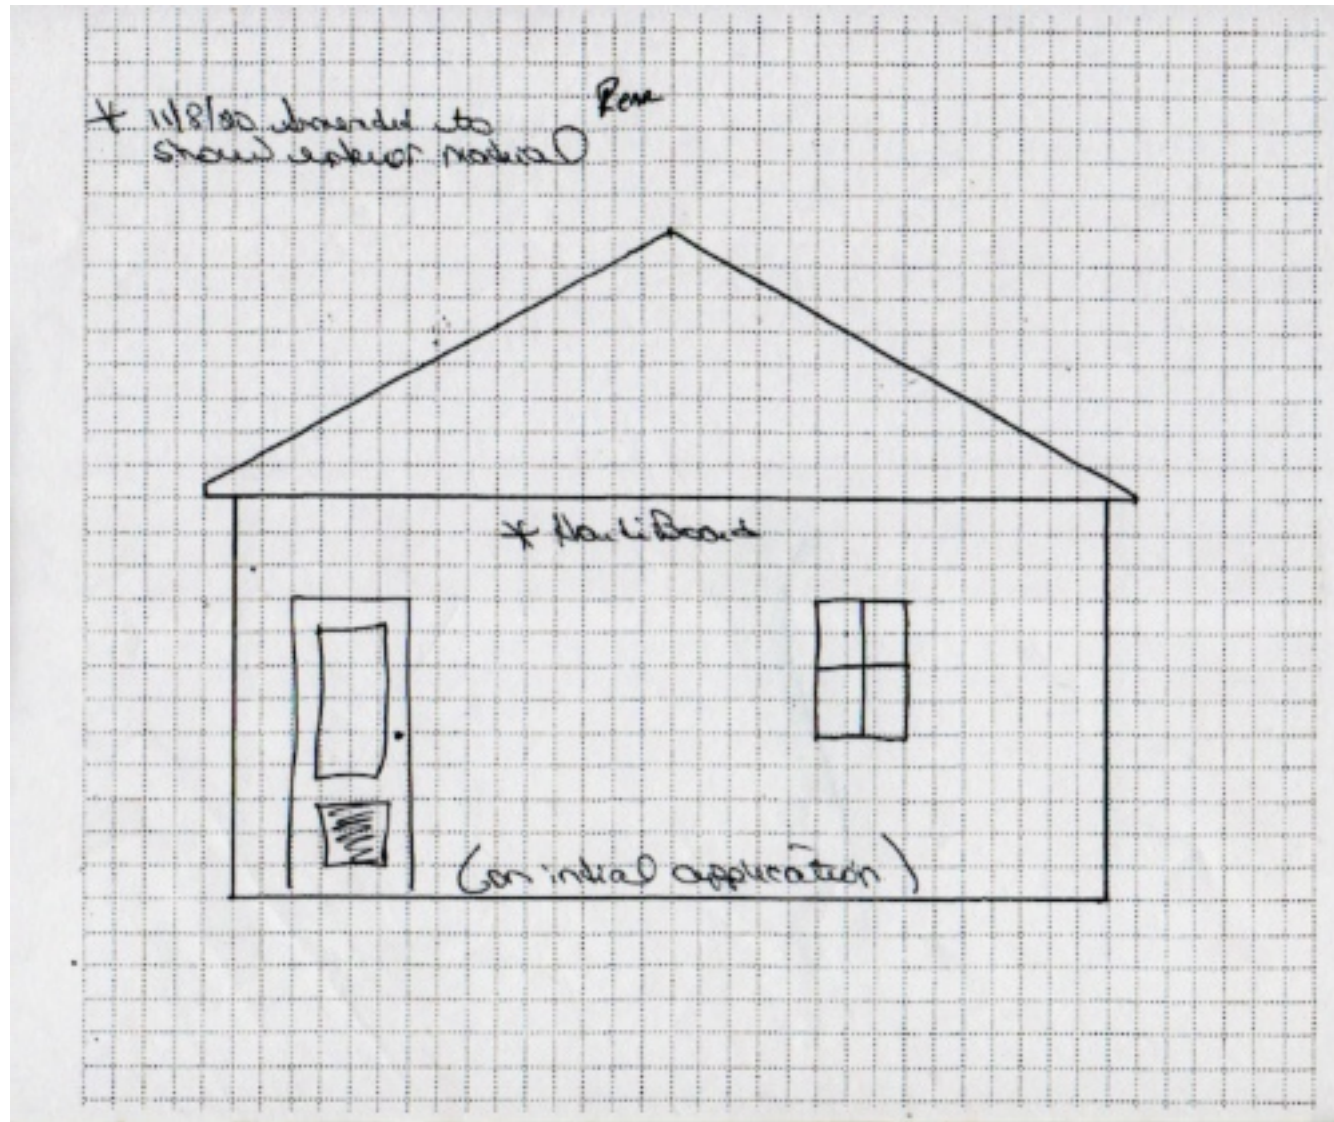 Rear
* 11/8/20 Amended to
show exterior material
* HardiBoard
(on initial application)